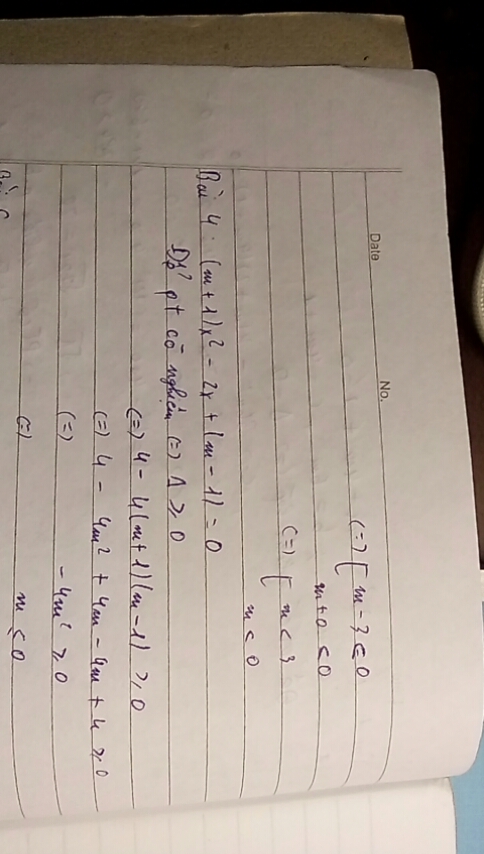 Date No.
(=) [ m - 3 < 0
m + 0 < 0
(=) [ m < 3
m < 0
Bài 4 : (m + 1)x² - 2x + (m - 1) = 0
Để pt có nghiệm (=) Δ ≥ 0
(=) 4 - 4(m + 1)(m - 1) ≥ 0
(=) 4 - 4m² + 4m - 4m + 4 ≥ 0
(=) - 4m² ≥ 0
(=) m ≤ 0
Bài